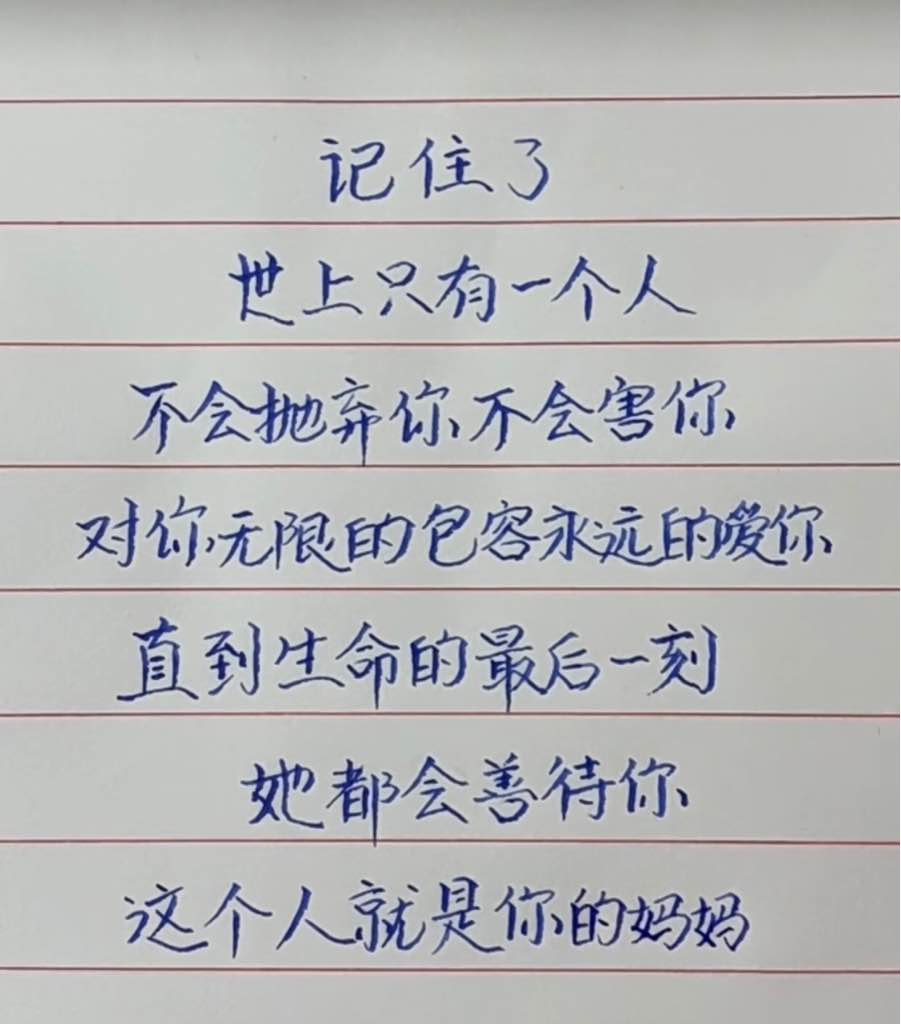 记住了
世上只有一个人
不会抛弃你不会害你
对你无限的包容永远的爱你
直到生命的最后一刻
她都会善待你
这个人就是你的妈妈